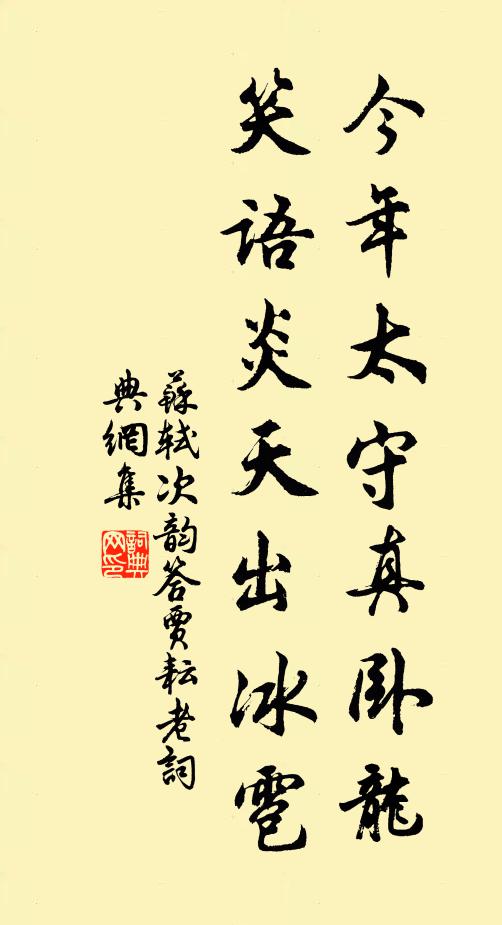 今年太守真卧龍
笑語炎天出冰雹
蘇軾次韵答賈耘老詞
典網集
詞典网印